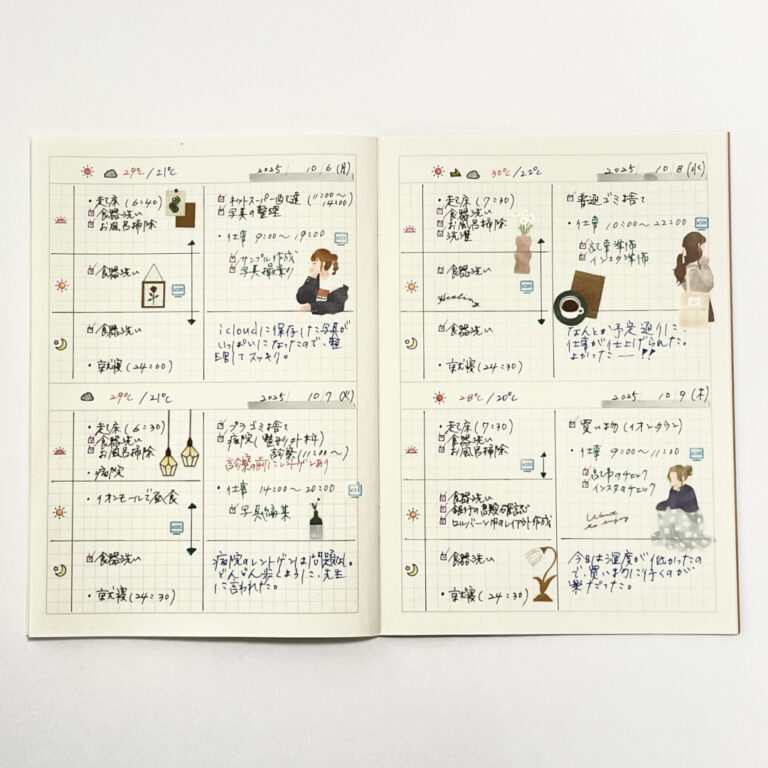 29℃/21℃
2025 10/6(月)
・起床(6:40)
食器洗い
お風呂掃除
食器洗い
WORK
食器洗い
・就寝(24:00)
ネットスーパー配達(11:00〜
14:00)
写真の整理
・仕事 9:00〜19:00
WORK
サンプル作成
写真撮影
icloudに保存した写真が
いっぱいになったので、整
理してスッキリ。
29℃/21℃
2025 10/7(火)
・起床(6:30)
食器洗い
お風呂掃除
・病院
・イオンモールで昼食
WORK
食器洗い
・就寝(24:30)
プラゴミ捨て
病院(整形外科)
診察(11:00〜)
診察の前にレントゲンあり
・仕事 14:00〜20:00
WORK
写真編集
病院のレントゲンは問題なし。
どんどん歩くように、先生
に言われた。
30℃/22℃
2025 10/8(水)
・起床(7:30)
食器洗い
お風呂掃除
洗濯
食器洗い
Healing
WORK
食器洗い
・就寝(24:30)
普通ゴミ捨て
・仕事 10:00〜22:00
WORK
記事準備
インスタ準備
なんとか予定通りに
仕事が仕上げられた。
よかったー!!
28℃/20℃
2025 10/9(木)
・起床(7:30)
食器洗い
お風呂掃除
WORK
食器洗い
銀行の高額の確認
ロルバーン中のレイアウト作成
食器洗い
・就寝(24:30)
買い物(イオンタウン)
・仕事 9:00〜11:00
WORK
記事のチェック
インスタのチェック
今日は湿度が低かったの
で、買いものに行くのが
楽だった。